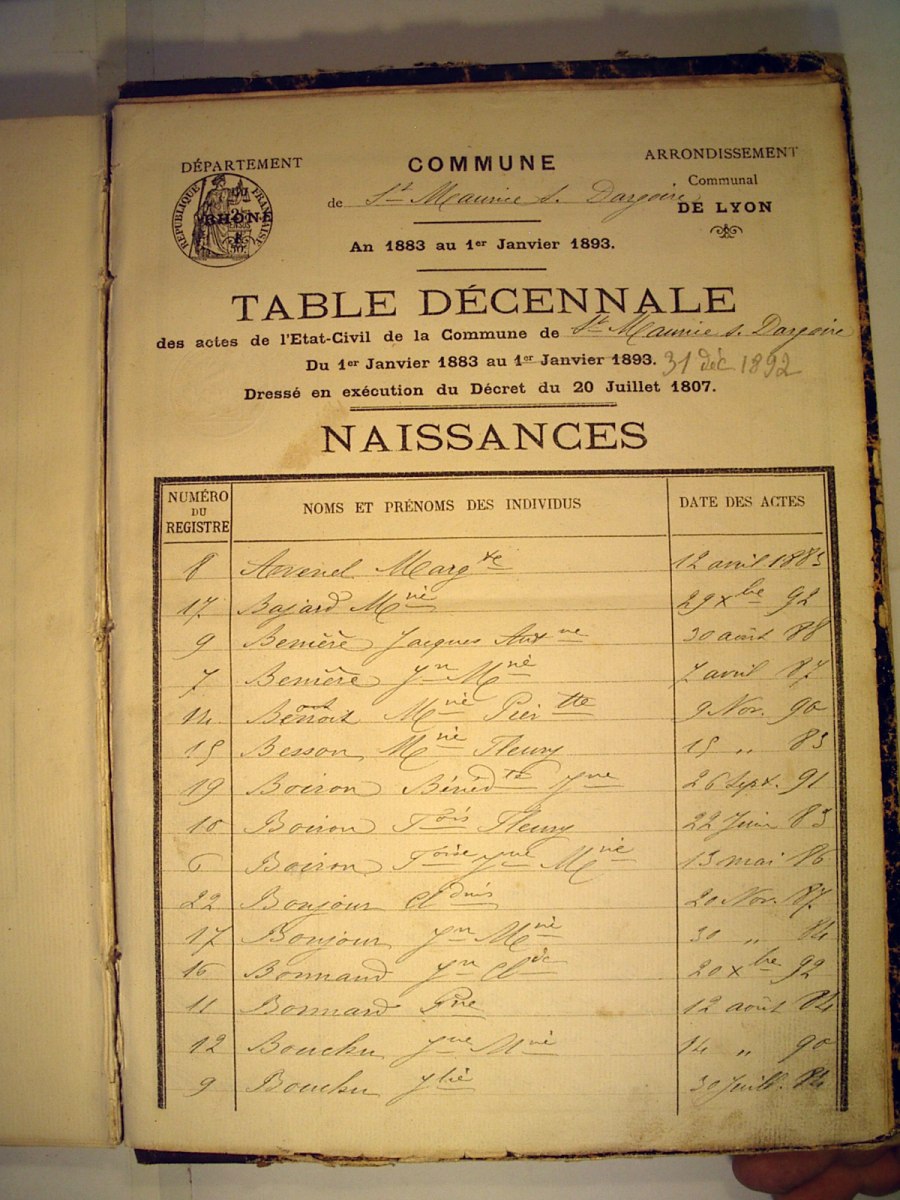 DÉPARTEMENT
DU
RHÔNE
RÉPUBLIQUE FRANÇAISE
COMMUNE
de St Maurice s. Dargoire
ARRONDISSEMENT
Communal
DE LYON
An 1883 au 1er Janvier 1893.
TABLE DÉCENNALE
des actes de l'Etat-Civil de la Commune de St Maurice s. Dargoire
Du 1er Janvier 1883 au 1er Janvier 1893. 31 déc 1892
Dressé en exécution du Décret du 20 Juillet 1807.
NAISSANCES
NUMÉRO DU REGISTRE NOMS ET PRÉNOMS DES INDIVIDUS DATE DES ACTES
8 Marg te 12 avril 1883
17 Bajard M nie 29 xbre 92
9 Benière Jacques 30 août 88
7 Benière Jn M nie 7 avril 87
14 Benoit M nie Pier tte 9 Nov. 90
15 Besson M nie Fleury 15 „ 83
19 Boiron Bénéd te Jne 26 Sept. 91
10 Boiron F ois Fleury 22 Juin 83
6 Boiron F oise Jne M nie 13 mai 86
22 Bonjour Cl dius 20 Nov. 87
17 Bonjour Jn M nie 30 „ 84
16 Bonnand Jn Cl de 20 xbre 92
11 Bonnard 12 août 84
12 Bouchu Jne M nie 14 „ 90
9 Bouchu 30 Juill. 84